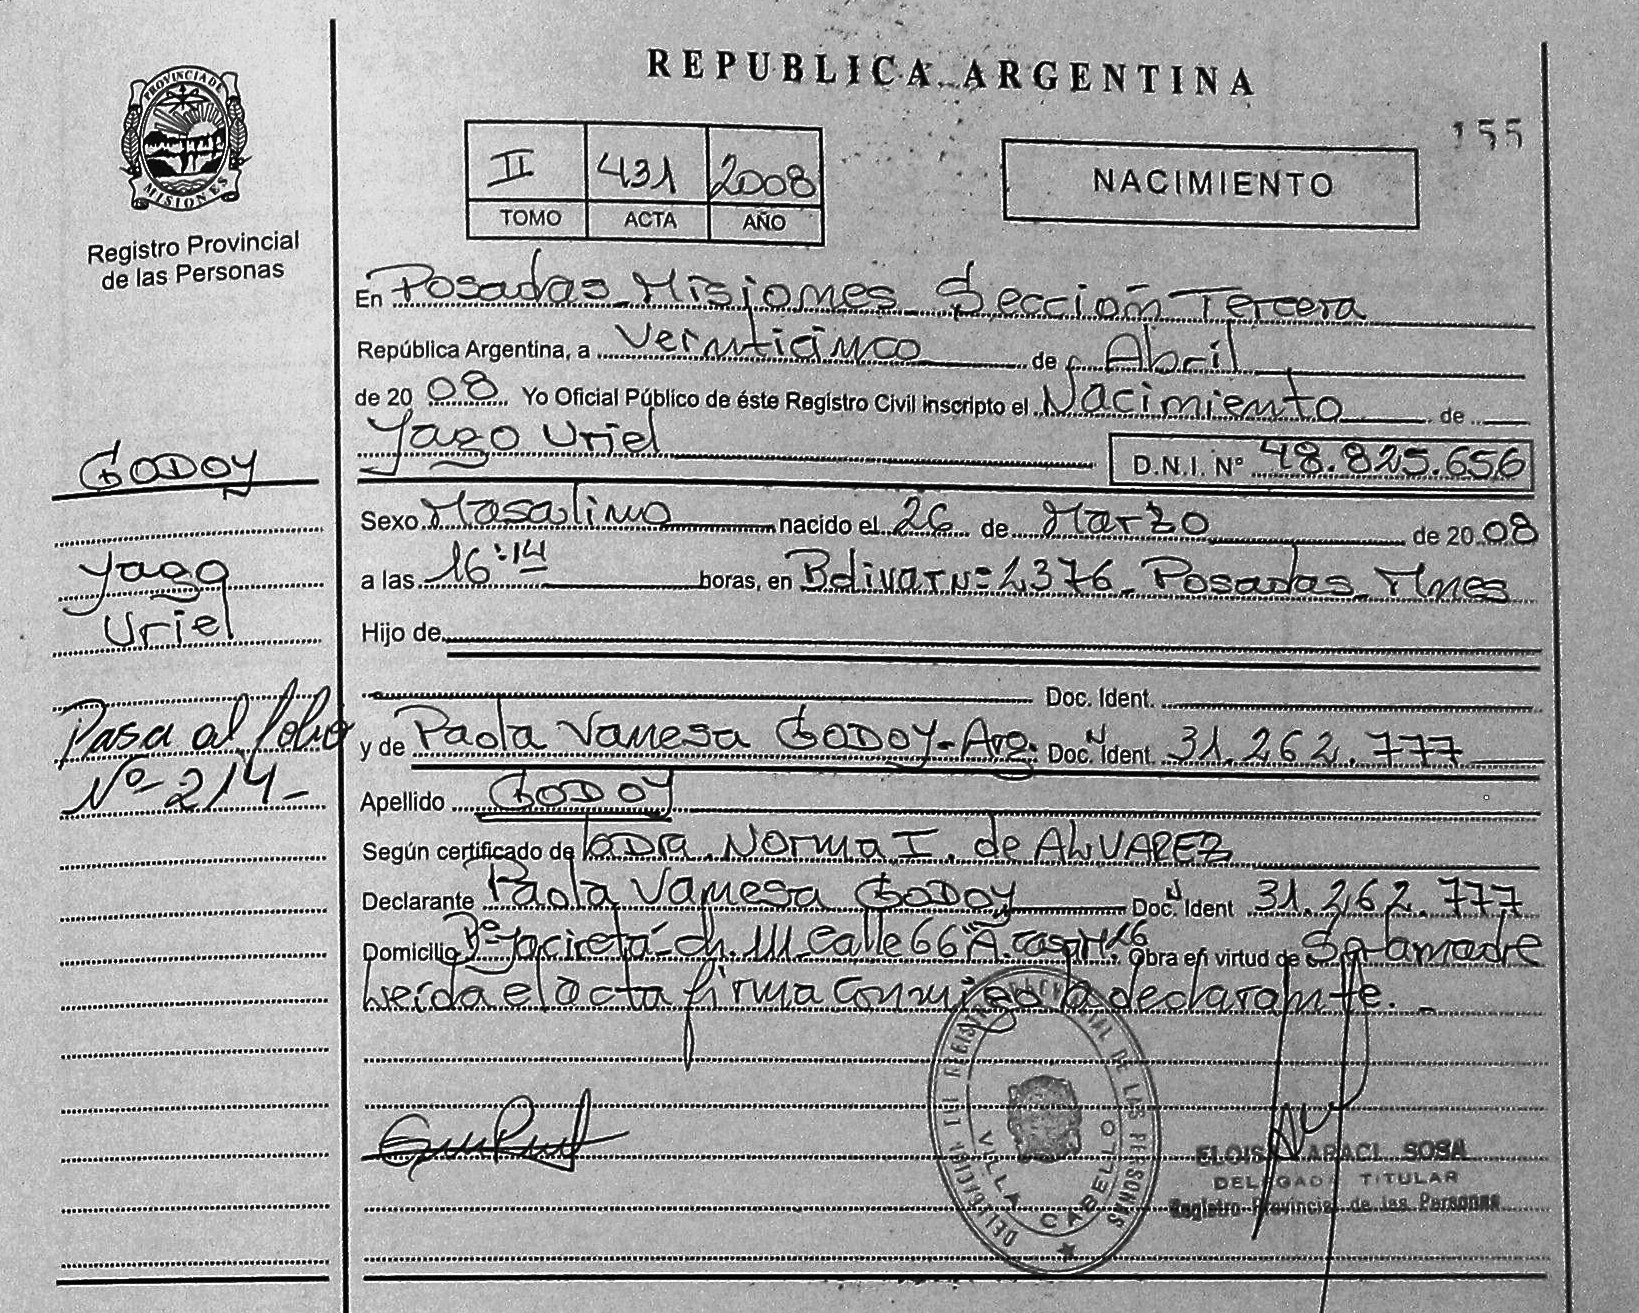 REPUBLICA ARGENTINA
155
PROVINCIA DE
MISIONES
Registro Provincial
de las Personas
II 431 2008
TOMO ACTA AÑO
NACIMIENTO
En Posadas Misiones Sección Tercera
República Argentina, a Veinticinco de Abril
de 20 08 Yo Oficial Público de éste Registro Civil inscripto el Nacimiento de
Yago Uriel D.N.I. Nº 48.825.656
GODOY
Sexo Masculino nacido el 26 de Marzo de 20 08
Yago
a las 16:14 horas, en Bolivar Nº 2376 Posadas Mnes
Uriel
Hijo de
Doc. Ident.
Pasa al folio
y de Paola Vanesa GODOY-Arg. Doc. Ident. 31.262.777
Nº 214-
Apellido GODOY
Según certificado de la DRA. Norma I. de ALVAREZ
Declarante Paola Vanesa GODOY Doc. Ident 31.262.777
Domicilio Bº Yacireta- ch. 111 Calle 66"A. casa Obra en virtud de Ser la madre
Leída el acta firma conmigo la declarante.
DELEGACION DEL REGISTRO PROVINCIAL DE LAS PERSONAS
VILLA CABELLO
ARACI SOSA
DELEGADA TITULAR
Registro Provincial de las Personas